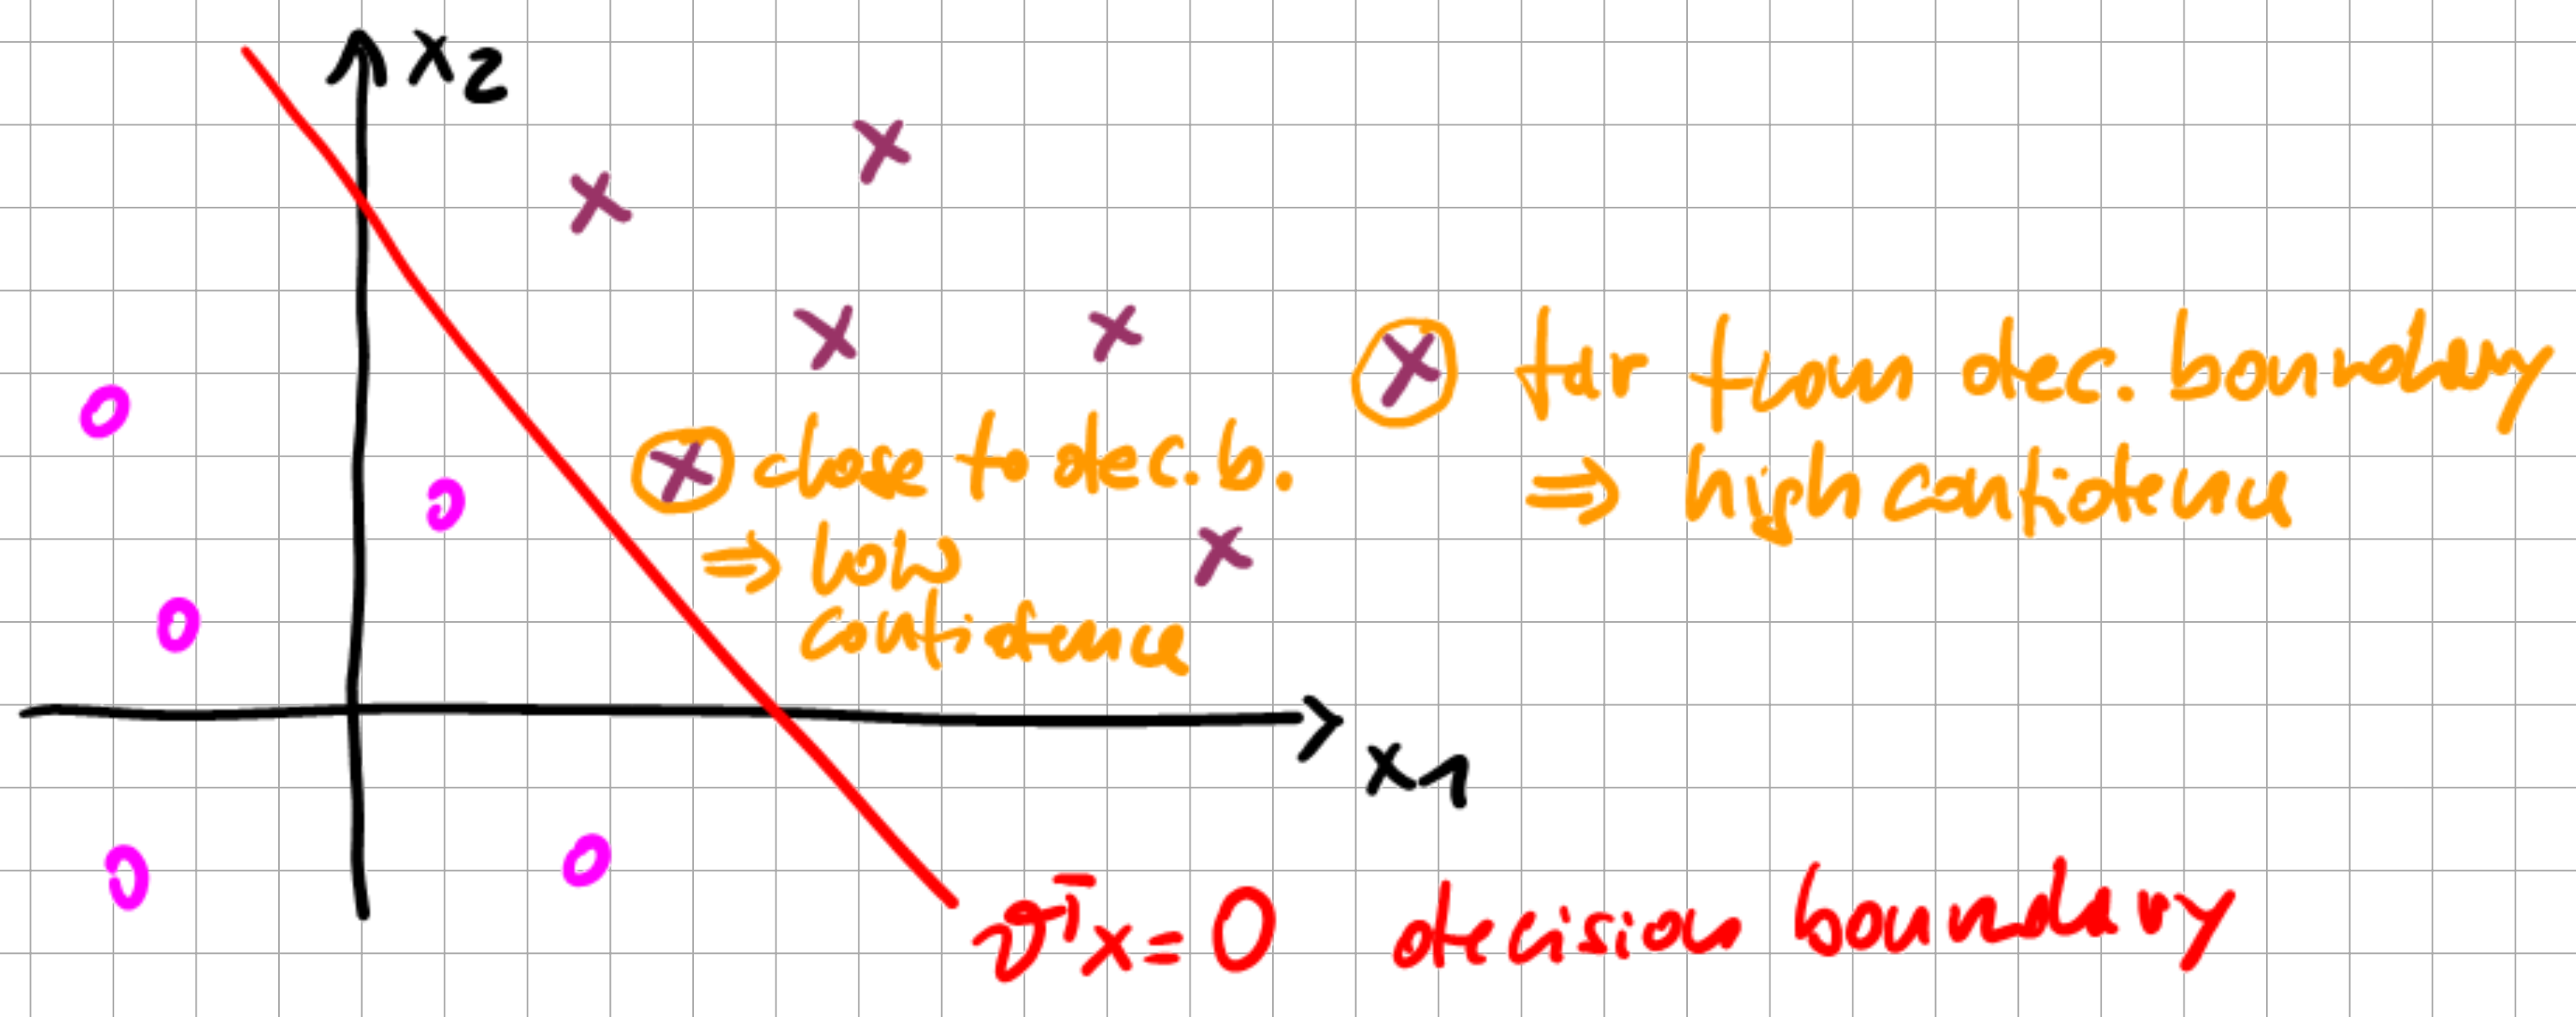 x2
far from dec. boundary
⇒ high confidence
close to dec. b.
⇒ low
confidence
x1
ϑᵀx = 0 decision boundary